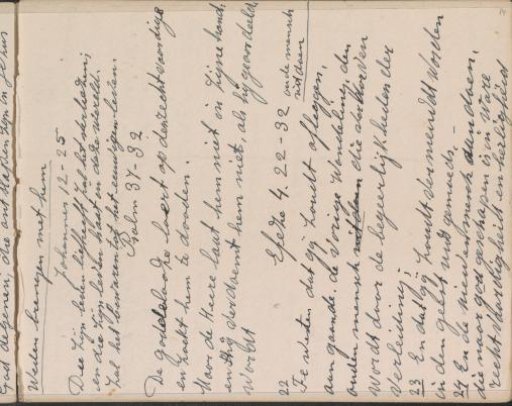 God degenen, die ontslapen zijn in Jezus
Weder brengen met hem
Johannes 12-25
Die zijn leven liefheeft zal het verliezen;
en die zijn leven haat in deze wereld.
zal het bewaren tot het eeuwigen leven.
Psalm 37-32
De goddelooze loert op den rechtvaardige
en zoekt hem te dooden.
Maar de Heere laat hem niet in zijne hand.
en Hij verdoemt hem niet, als hij geoordeeld
wordt
Efeze 4. 22-32 oude mensch
uitdoen
22
Te weten dat gij zoudt afleggen,
aangaande de vorige wandeling, den
ouden mensch die verdorven
wordt door de begeerlijkheden der
verleiding;
23 En dat gij zoudt vernieuwd worden
in den geest uws gemoeds. -
24 En de nieuwen mensch aandoen,
die naar god geschapen is in ware
rechtvaardigheid en heiligheid